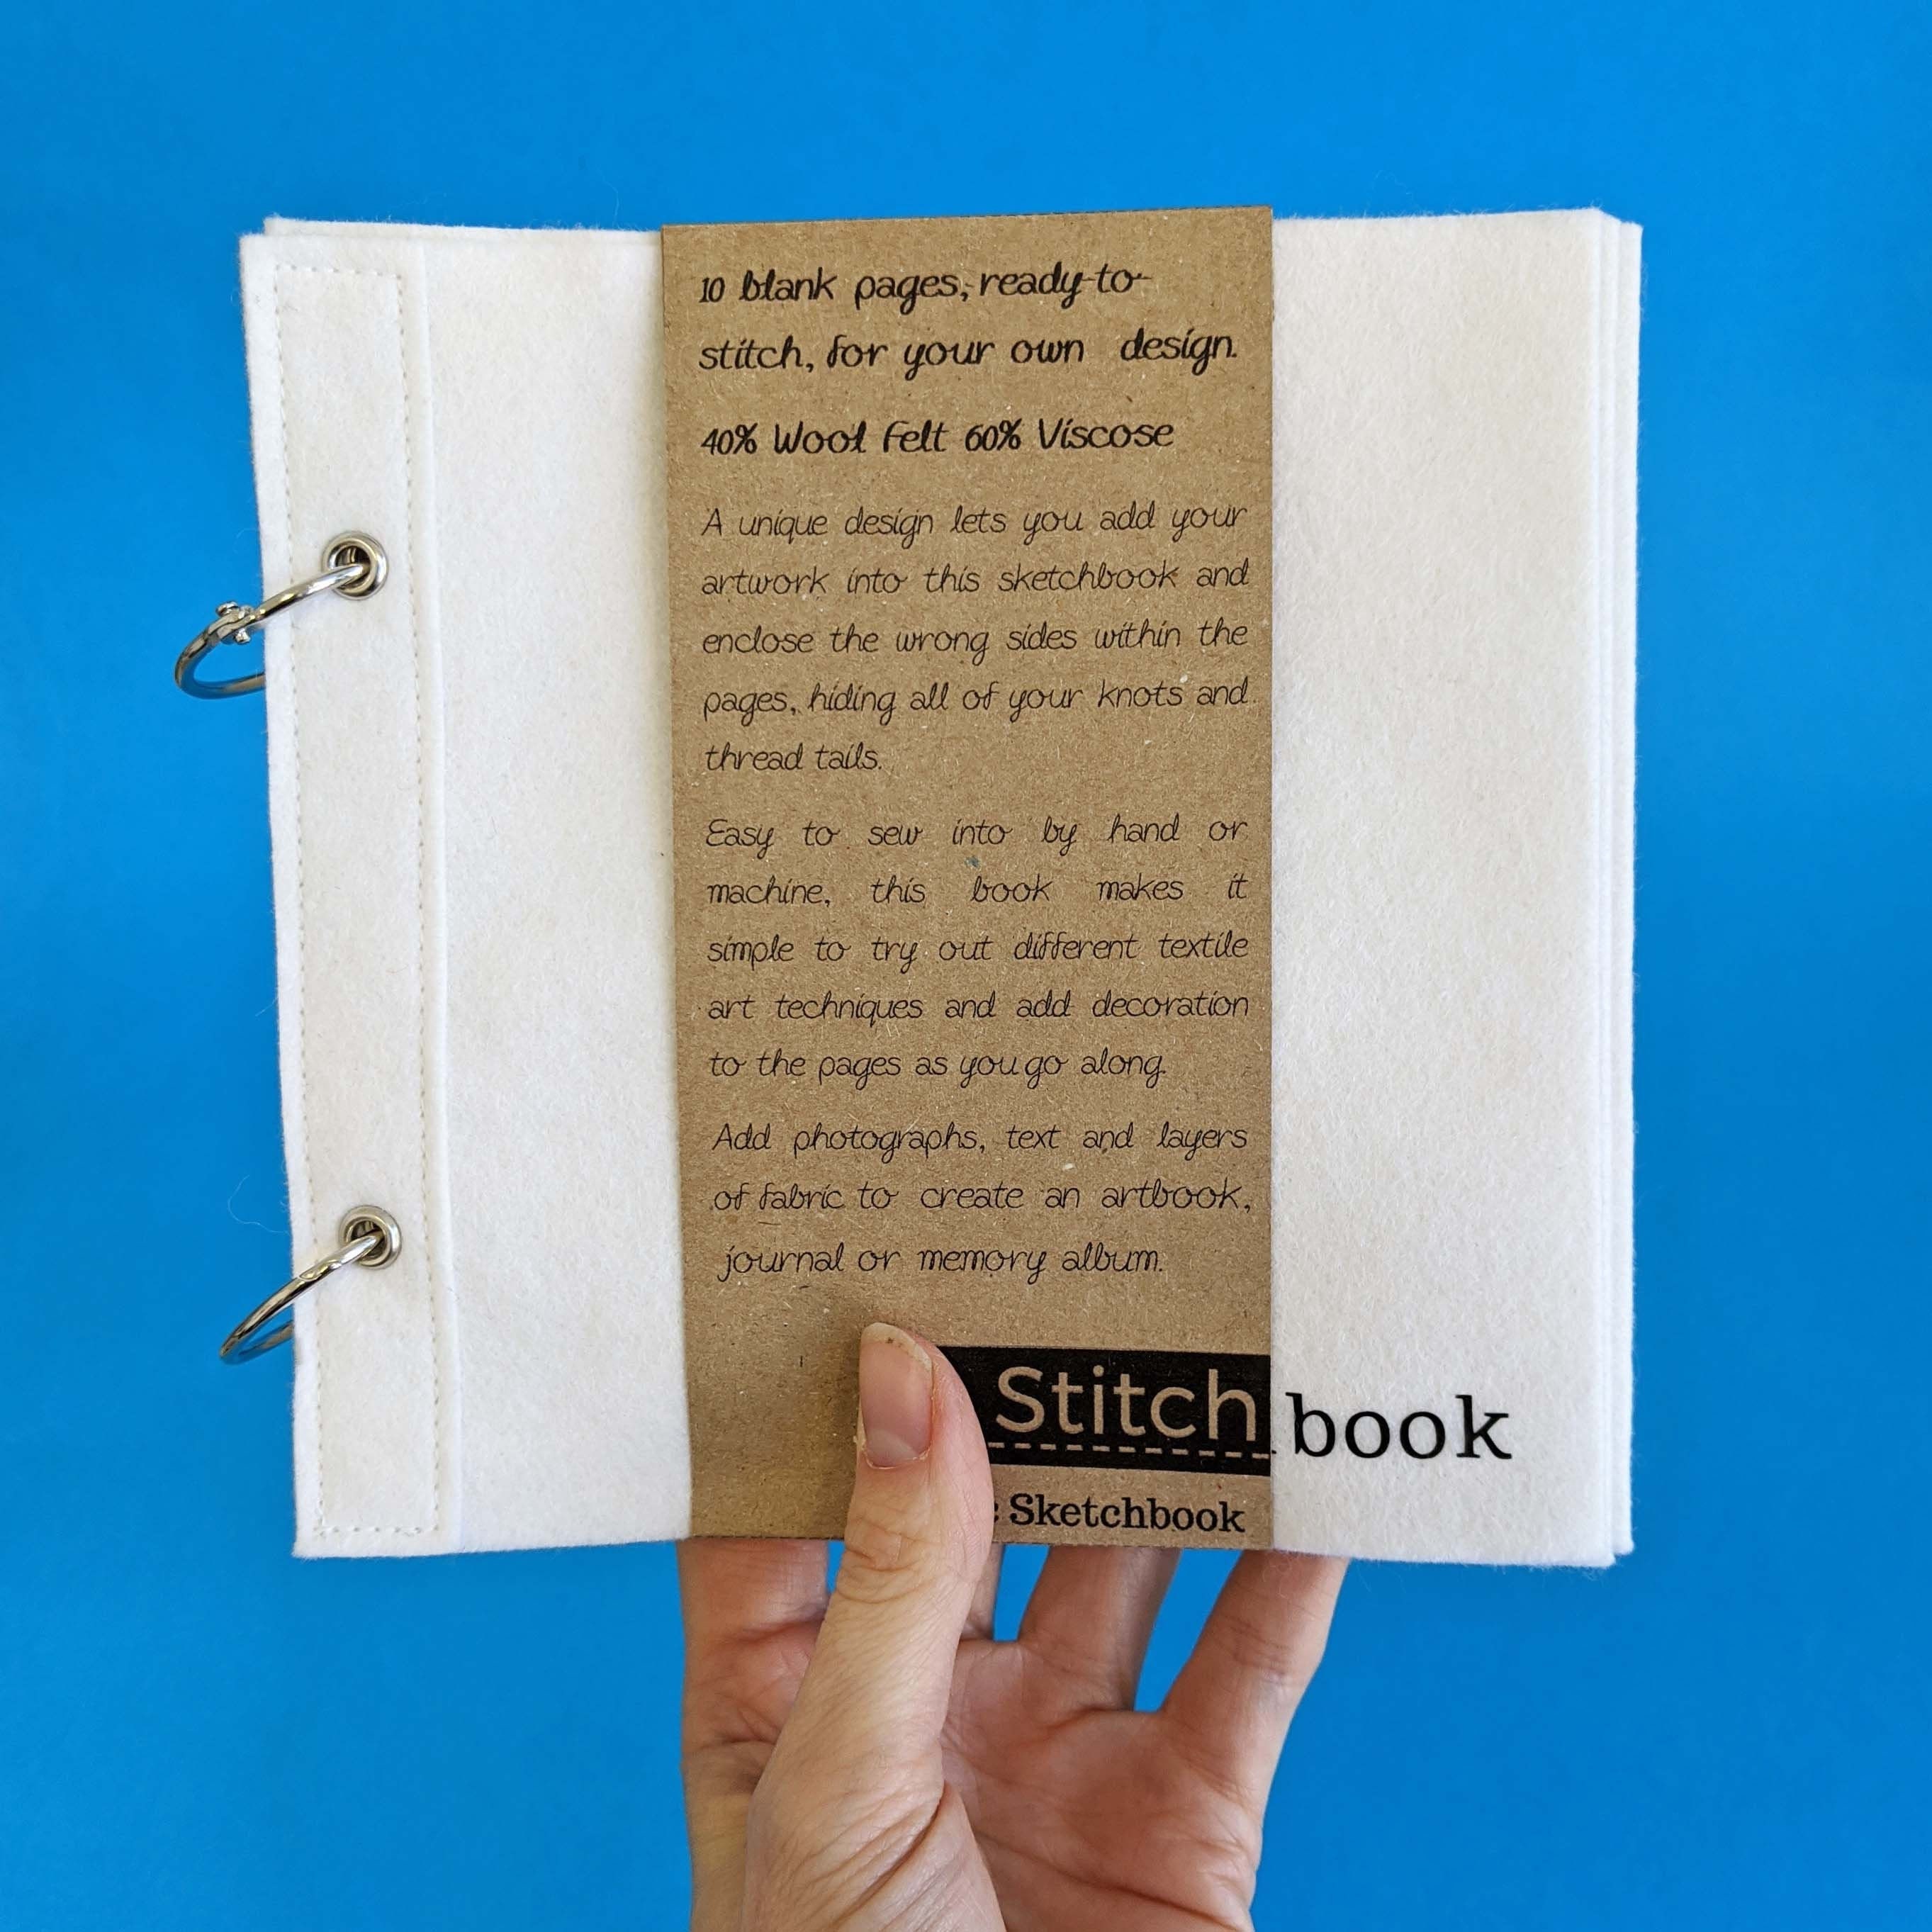 10 blank pages, ready-to-
stitch, for your own design.
40% Wool Felt 60% Viscose
A unique design lets you add your
artwork into this sketchbook and
enclose the wrong sides within the
pages, hiding all of your knots and
thread tails.
Easy to sew into by hand or
machine, this book makes it
simple to try out different textile
art techniques and add decoration
to the pages as you go along.
Add photographs, text and layers
of fabric to create an artbook,
journal or memory album.
Stitch book
Sketchbook